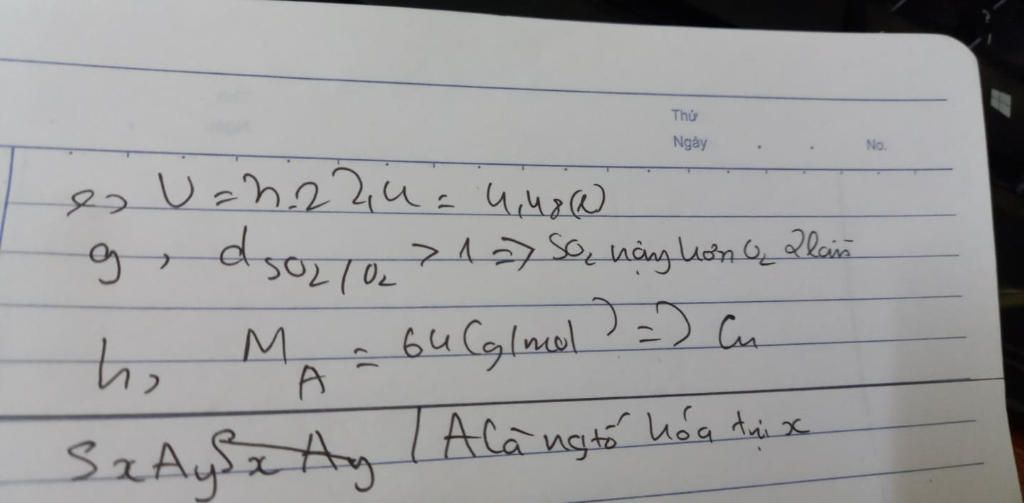 Thứ
Ngày No.
=> V = n.22,4 = 4,48(l)
g, d SO2/O2 > 1 => SO2 nặng hơn O2 2 lần
h, MA = 64(g/mol) => Cu
SxAy SxAy / A là ngtố hóa trị x